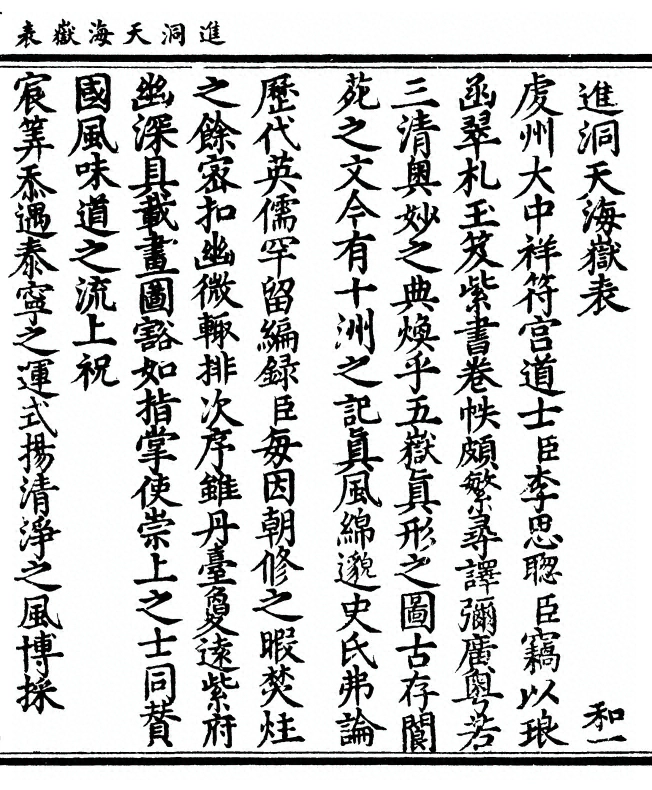 進洞天海嶽表
進洞天海嶽表
和一
虔州大中祥符宫道士臣李思聦臣竊以琅
函翠札玉笈紫書卷帙頗繁尋譯彌廣粤若
三清奥妙之典煥乎五嶽真形之圖古存閬
苑之文今有十洲之記真風綿邈史氏弗論
歷代英儒罕留編録臣每因朝修之暇焚炷
之餘宻扣幽微輙排次序雖丹臺夐逺紫府
幽深具載畫圖豁如指掌使崇上之士同賛
國風味道之流上祝
宸筭忝遇泰寧之運式揚清淨之風博採